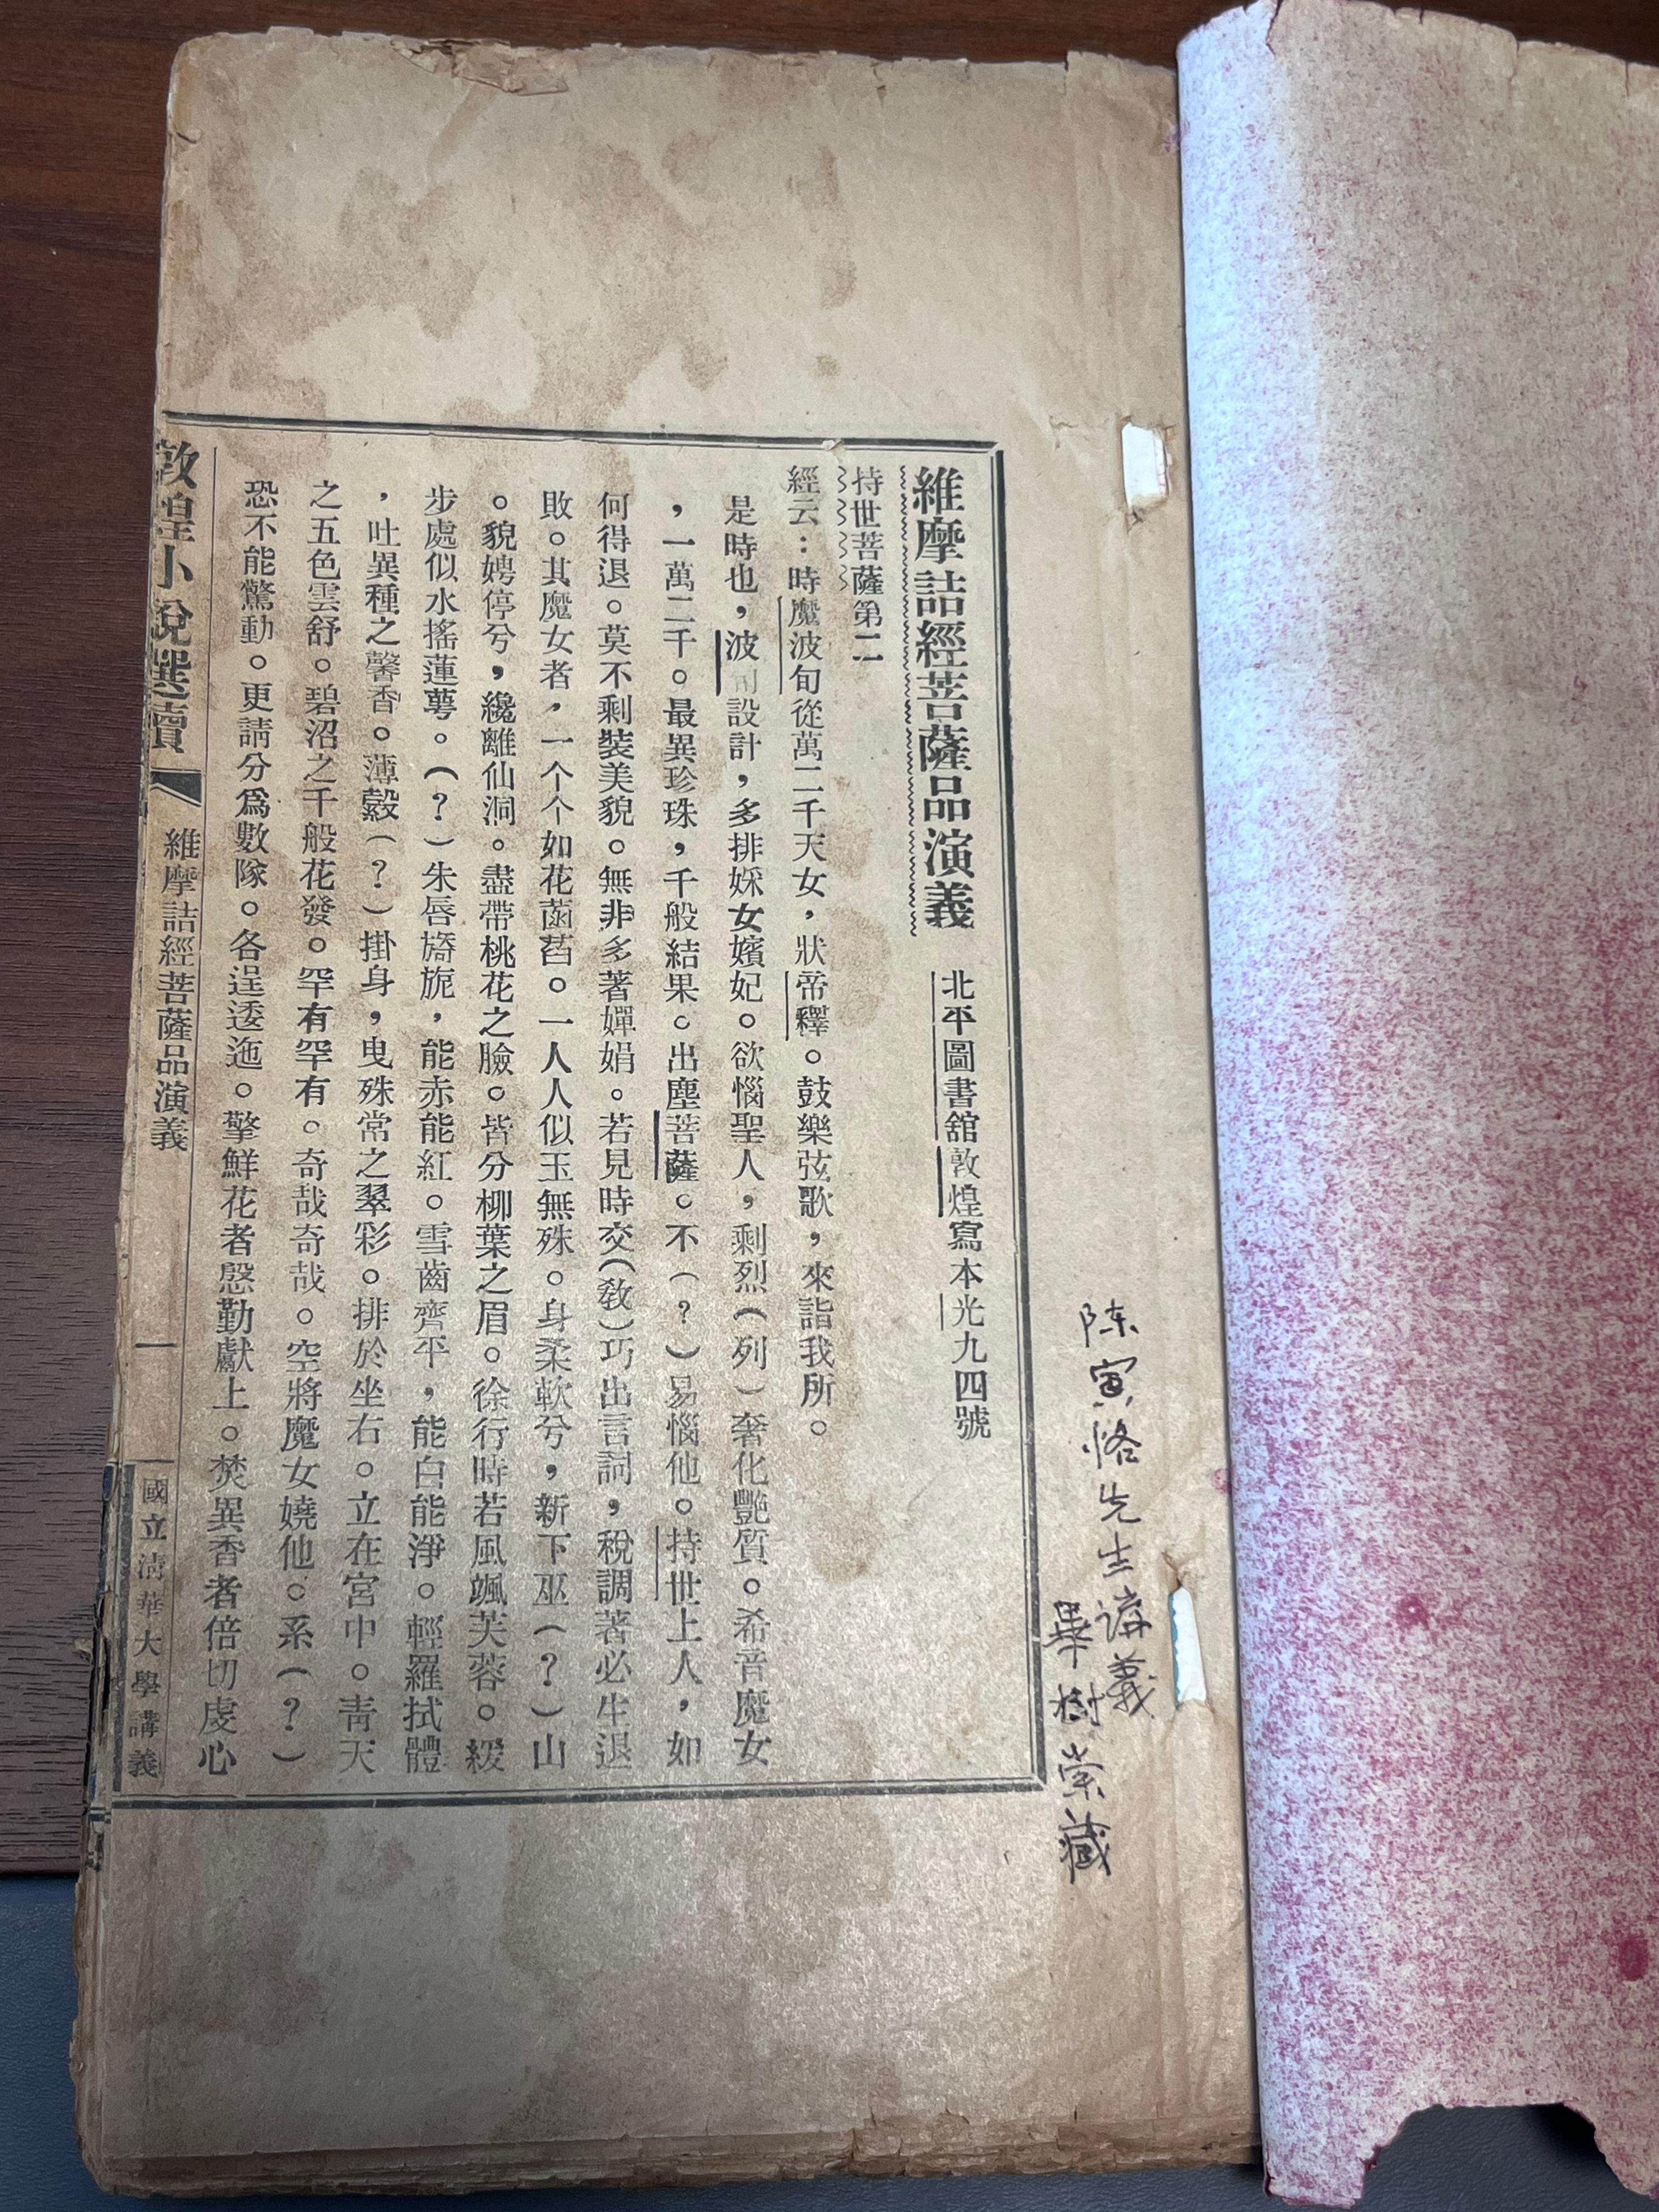 陈寅恪先生講義
畢樹棠藏
維摩詰經菩薩品演義 北平圖書舘敦煌寫本光九四號
持世菩薩第二
經云：時魔波旬從萬二千天女，狀帝釋。鼓樂弦歌，來詣我所。
是時也，波旬設計，多排婇女嬪妃。欲惱聖人，剩烈（列）奢化艷質。希音魔女
，一萬二千。最異珍珠，千般結果。出塵菩薩。不（？）易惱他。持世上人，如
何得退。莫不剩裝美貌。無非多著嬋娟。若見時交（敎）巧出言詞，稅調著必生退
敗。其魔女者，一个个如花菡萏。一人人似玉無殊。身柔軟兮，新下巫（？）山
。貌娉停兮，纔離仙洞。盡帶桃花之臉。皆分柳葉之眉。徐行時若風颯芙蓉。緩
步處似水搖蓮蕚。（？）朱唇旖旎，能赤能紅。雪齒齊平，能白能淨。輕羅拭體
，吐異種之馨香。薄縠（？）掛身，曳殊常之翠彩。排於坐右。立在宮中。靑天
之五色雲舒。碧沼之千般花發。罕有罕有。奇哉奇哉。空將魔女嬈他。系（？）
恐不能驚動。更請分爲數隊。各逞逶迤。擎鮮花者慇勤獻上。焚異香者倍切虔心
敦煌小說選讀 維摩詰經菩薩品演義 一 國立淸華大學講義